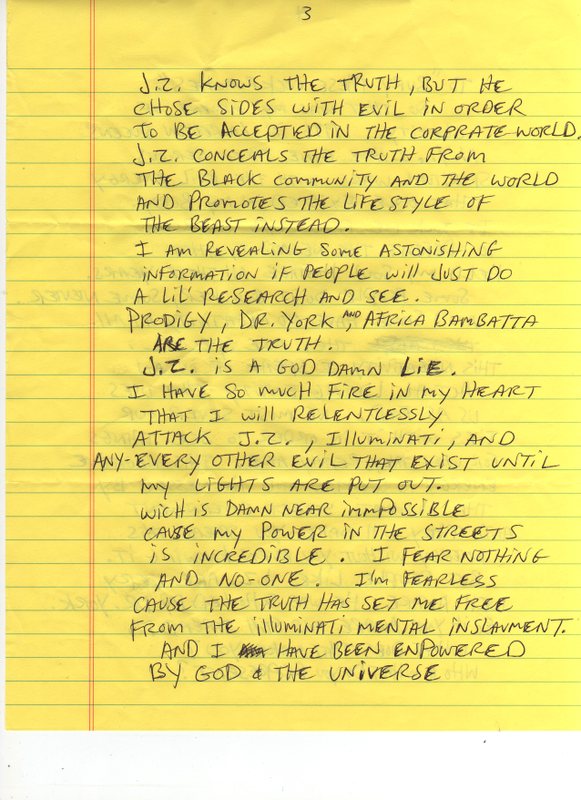 3
J.Z. KNOWS THE TRUTH, BUT HE
CHOSE SIDES WITH EVIL IN ORDER
TO BE ACCEPTED IN THE CORPRATE WORLD.
J.Z. CONCEALS THE TRUTH FROM
THE BLACK COMMUNITY AND THE WORLD
AND PROMOTES THE LIFESTYLE OF
THE BEAST INSTEAD.
I AM REVEALING SOME ASTONISHING
INFORMATION IF PEOPLE WILL JUST DO
A LIL' RESEARCH AND SEE.
PRODIGY, DR. YORK AND AFRICA BAMBATTA
ARE THE TRUTH.
J.Z. IS A GOD DAMN LIE.
I HAVE SO MUCH FIRE IN MY HEART
THAT I WILL RELENTLESSLY
ATTACK J.Z., ILLUMINATI, AND
ANY-EVERY OTHER EVIL THAT EXIST UNTIL
MY LIGHTS ARE PUT OUT.
WICH IS DAMN NEAR IMMPOSSIBLE
CAUSE MY POWER IN THE STREETS
IS INCREDIBLE. I FEAR NOTHING
AND NO-ONE. I'M FEARLESS
CAUSE THE TRUTH HAS SET ME FREE
FROM THE ILLUMINATI MENTAL INSLAVMENT.
AND I HAVE BEEN ENPOWERED
BY GOD & THE UNIVERSE